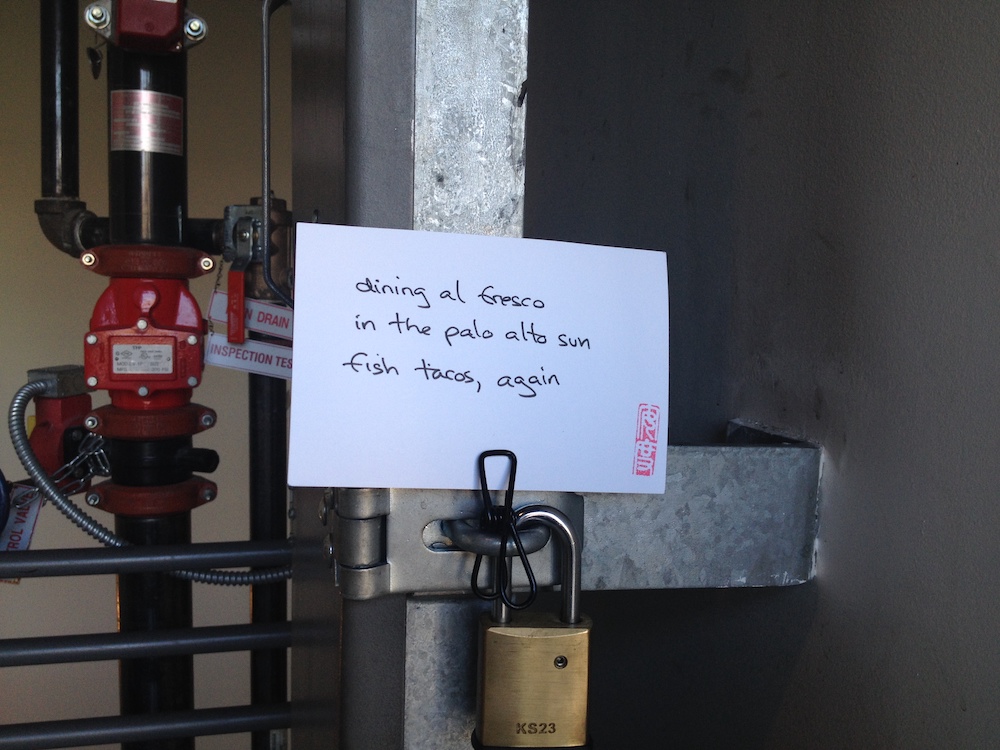 dining al fresco
in the palo alto sun
fish tacos, again
N DRAIN
INSPECTION TES
TROL VAL
KS23